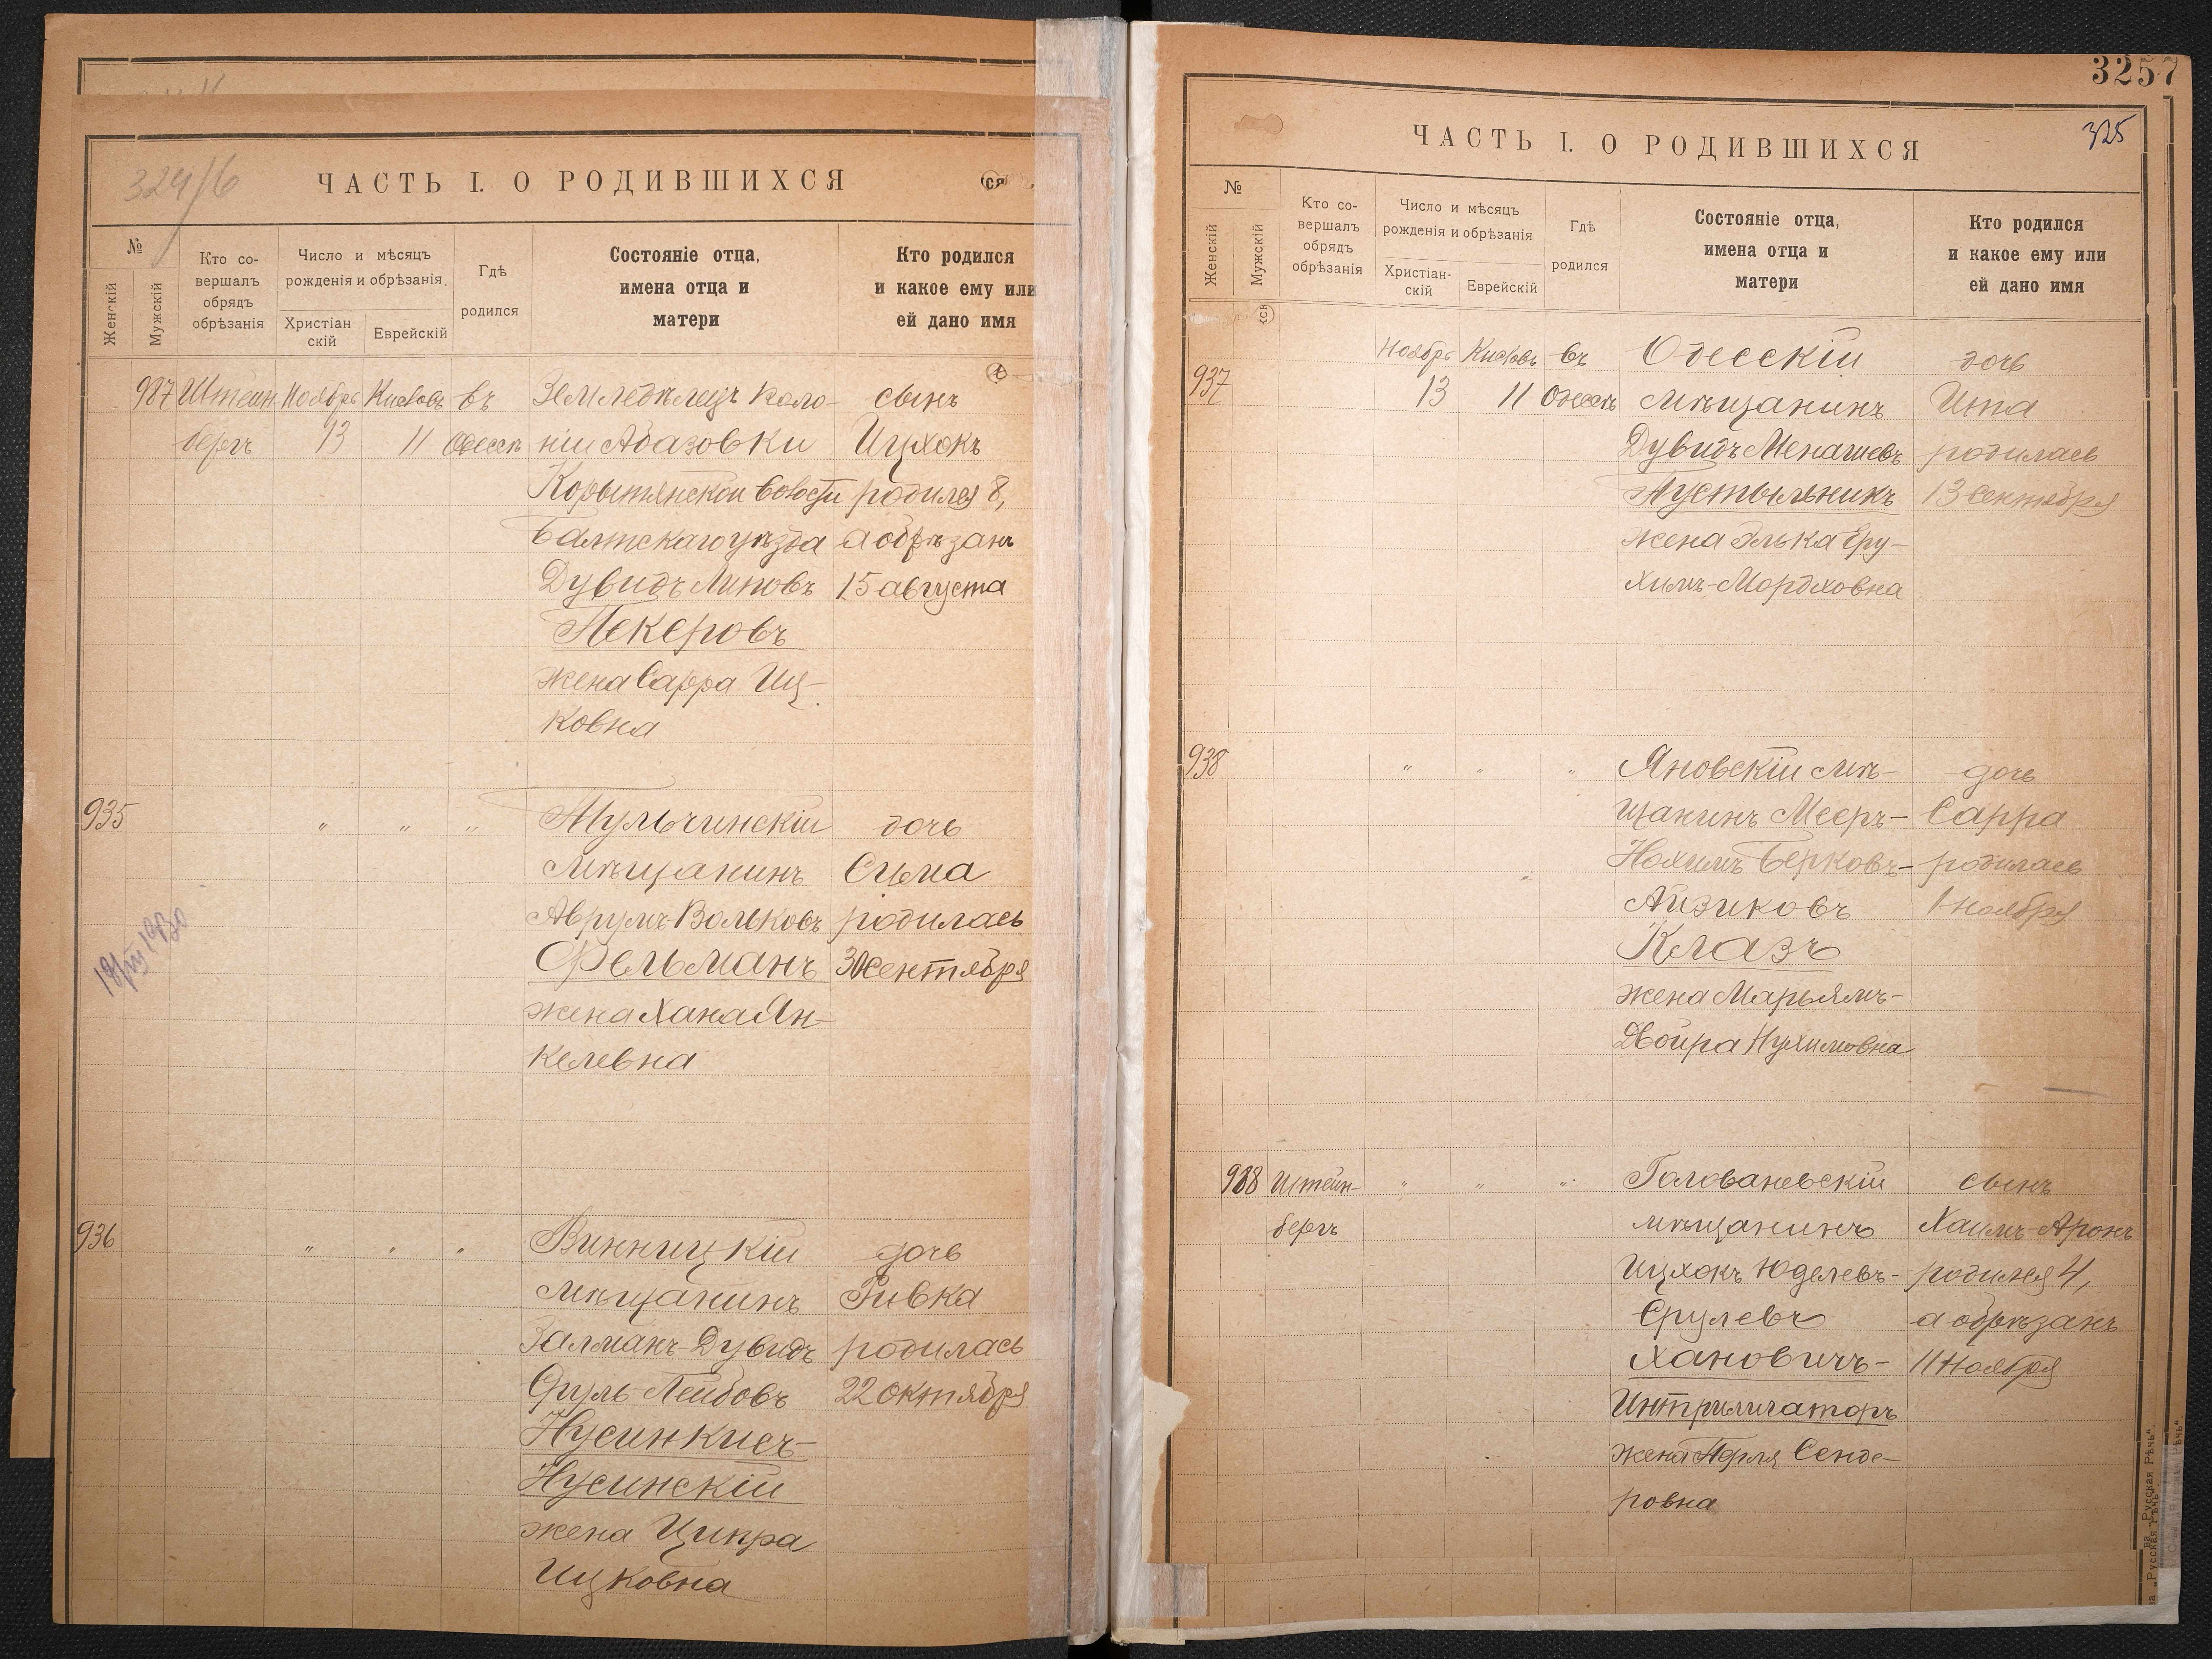 324/6
ЧАСТЬ I. О РОДИВШИХСЯ
ся
№
Женскій
Мужскій
Кто со-
вершалъ
обрядъ
обрѣзанія
Число и мѣсяцъ
рожденія и обрѣзанія.
Христіан
скій
Еврейскій
Гдѣ
родился
Состояніе отца,
имена отца и
матери
Кто родился
и какое ему или
ей дано имя
987 Штейн Ноябрь Кислевъ въ Земледѣлецъ коло- сынъ
бергъ 13 11 Одессѣ ніи Абазовки Ицхокъ
Корытнянской волости родился 8,
Балтскаго уѣзда а обрѣзанъ
Дувидъ Липовъ 15 августа
Пекеровъ
жена Сарра Иц-
ковна
935 " " " Тульчинскій дочь
мѣщанинъ Сима
Аврумъ-Вольковъ родилась
Фельманъ 30 сентября
жена Хана Ян-
келевна
936 " " " Винницкій дочь
мѣщанинъ Ривка
Залманъ-Дувидъ родилась
Сруль-Лейбовъ 22 октября
Нусинкисъ-
Нусинскій
жена Ципра
Ицковна
3257
325
ЧАСТЬ I. О РОДИВШИХСЯ
№
Женскій
Мужскій
Кто со-
вершалъ
обрядъ
обрѣзанія
Число и мѣсяцъ
рожденія и обрѣзанія
Христіан-
скій
Еврейскій
Гдѣ
родился
Состояніе отца,
имена отца и
матери
Кто родился
и какое ему или
ей дано имя
Ноябрь Кислевъ въ Одесскій дочь
937 13 11 Одессѣ мѣщанинъ Ита
Дувидъ Менашевъ родилась
Пустыльникъ 13 сентября
жена Элька Еру-
химъ-Мордховна
938 " " " Яновскій мѣ- дочь
щанинъ Мееръ- Сарра
Нохимъ Берковъ- родилась
Айзиковъ 1 ноября
Клазъ
жена Марьямъ-
Двойра Нухимовна
988 Штейн- " " " Голованевскій сынъ
бергъ мѣщанинъ Хаимъ-Аронъ
Ицхокъ Юделевъ- родился 4,
Срулевъ а обрѣзанъ
Хановичъ- 11 ноября
Интрилигаторъ
жена Перля Сенде-
ровна
„Русская Рѣчь“.